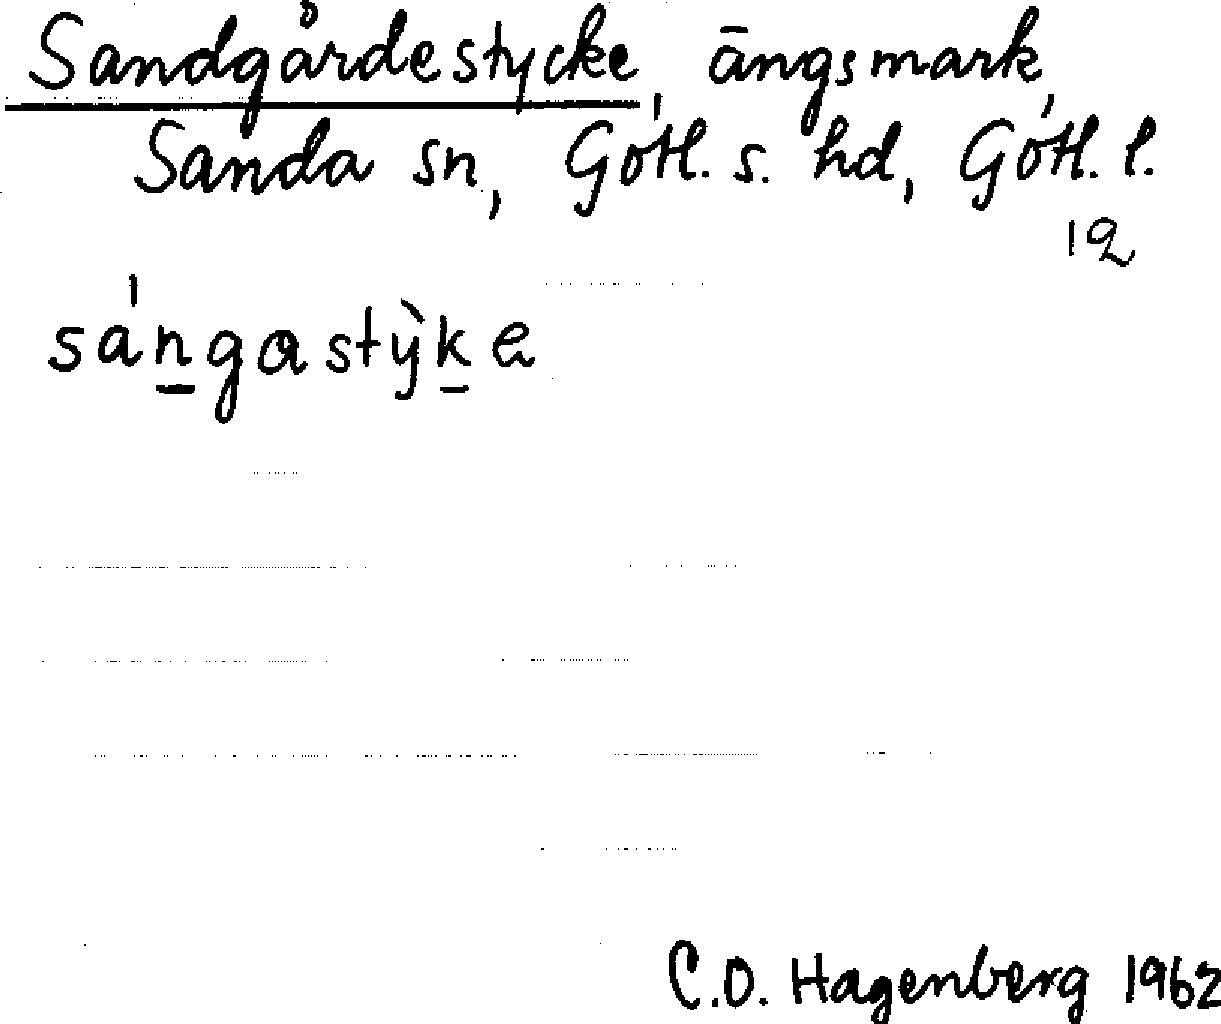 Sandgårdestycke, ängsmark,
Sanda sn, Gotl. s. hd, Gotl. l.
19
sángastỳke
C.O. Hagenberg 1962